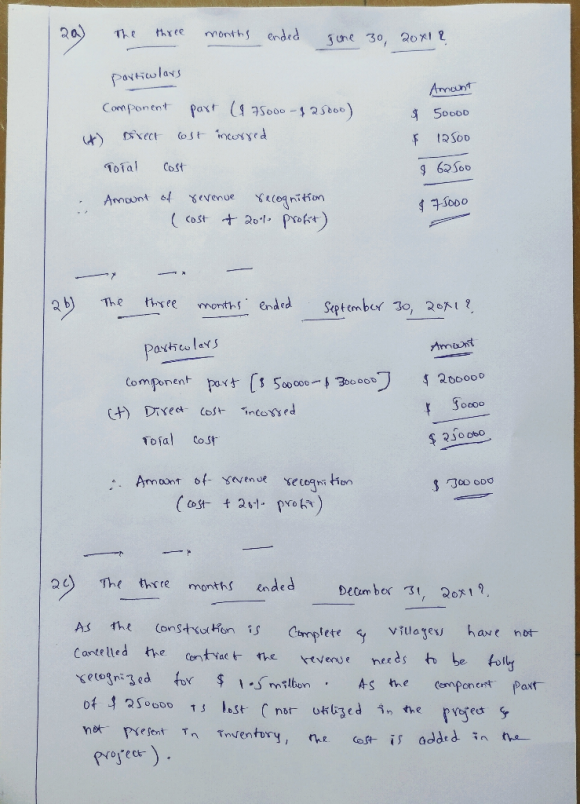 2a) The three months ended June 30, 20X1?
Particulars
Amount
Component part ($75000 - $25000) $ 50000
(+) Direct cost incurred $ 12500
Total cost $ 62500
∴ Amount of revenue recognition $ 75000
(cost + 20% profit)
2b) The three months ended September 30, 20X1?
particulars Amount
Component part [$ 500000 - $ 300000] $ 200000
(+) Direct cost incorred $ 50000
Total cost $ 250000
∴ Amount of revenue recognition $ 300000
(cost + 20% profit)
2c) The three months ended December 31, 20X1?
As the construction is Complete & villagers have not
Cancelled the contract the revenue needs to be fully
recognized for $ 1.5 million. As the component part
of $ 250000 is lost (not utilized in the project &
not present in inventory, the cost is added in the
project).